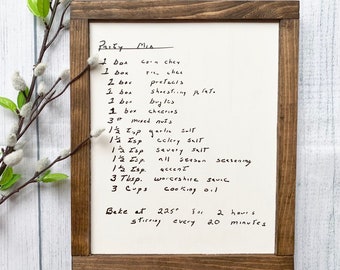 Party Mix
1 box corn chex
1 box rice chex
2 box pretzels
1 box shoestring potato
1 box bugles
1 box cheerios
3# mixed nuts
1 ½ tsp garlic salt
1 ½ tsp celery salt
1 ½ tsp savory salt
1 ½ tsp all season seasoning
1 ½ tsp accent
3 Tbsp. worcershire sauce
3 Cups cooking oil
Bake at 225° for 2 hours
stirring every 20 minutes